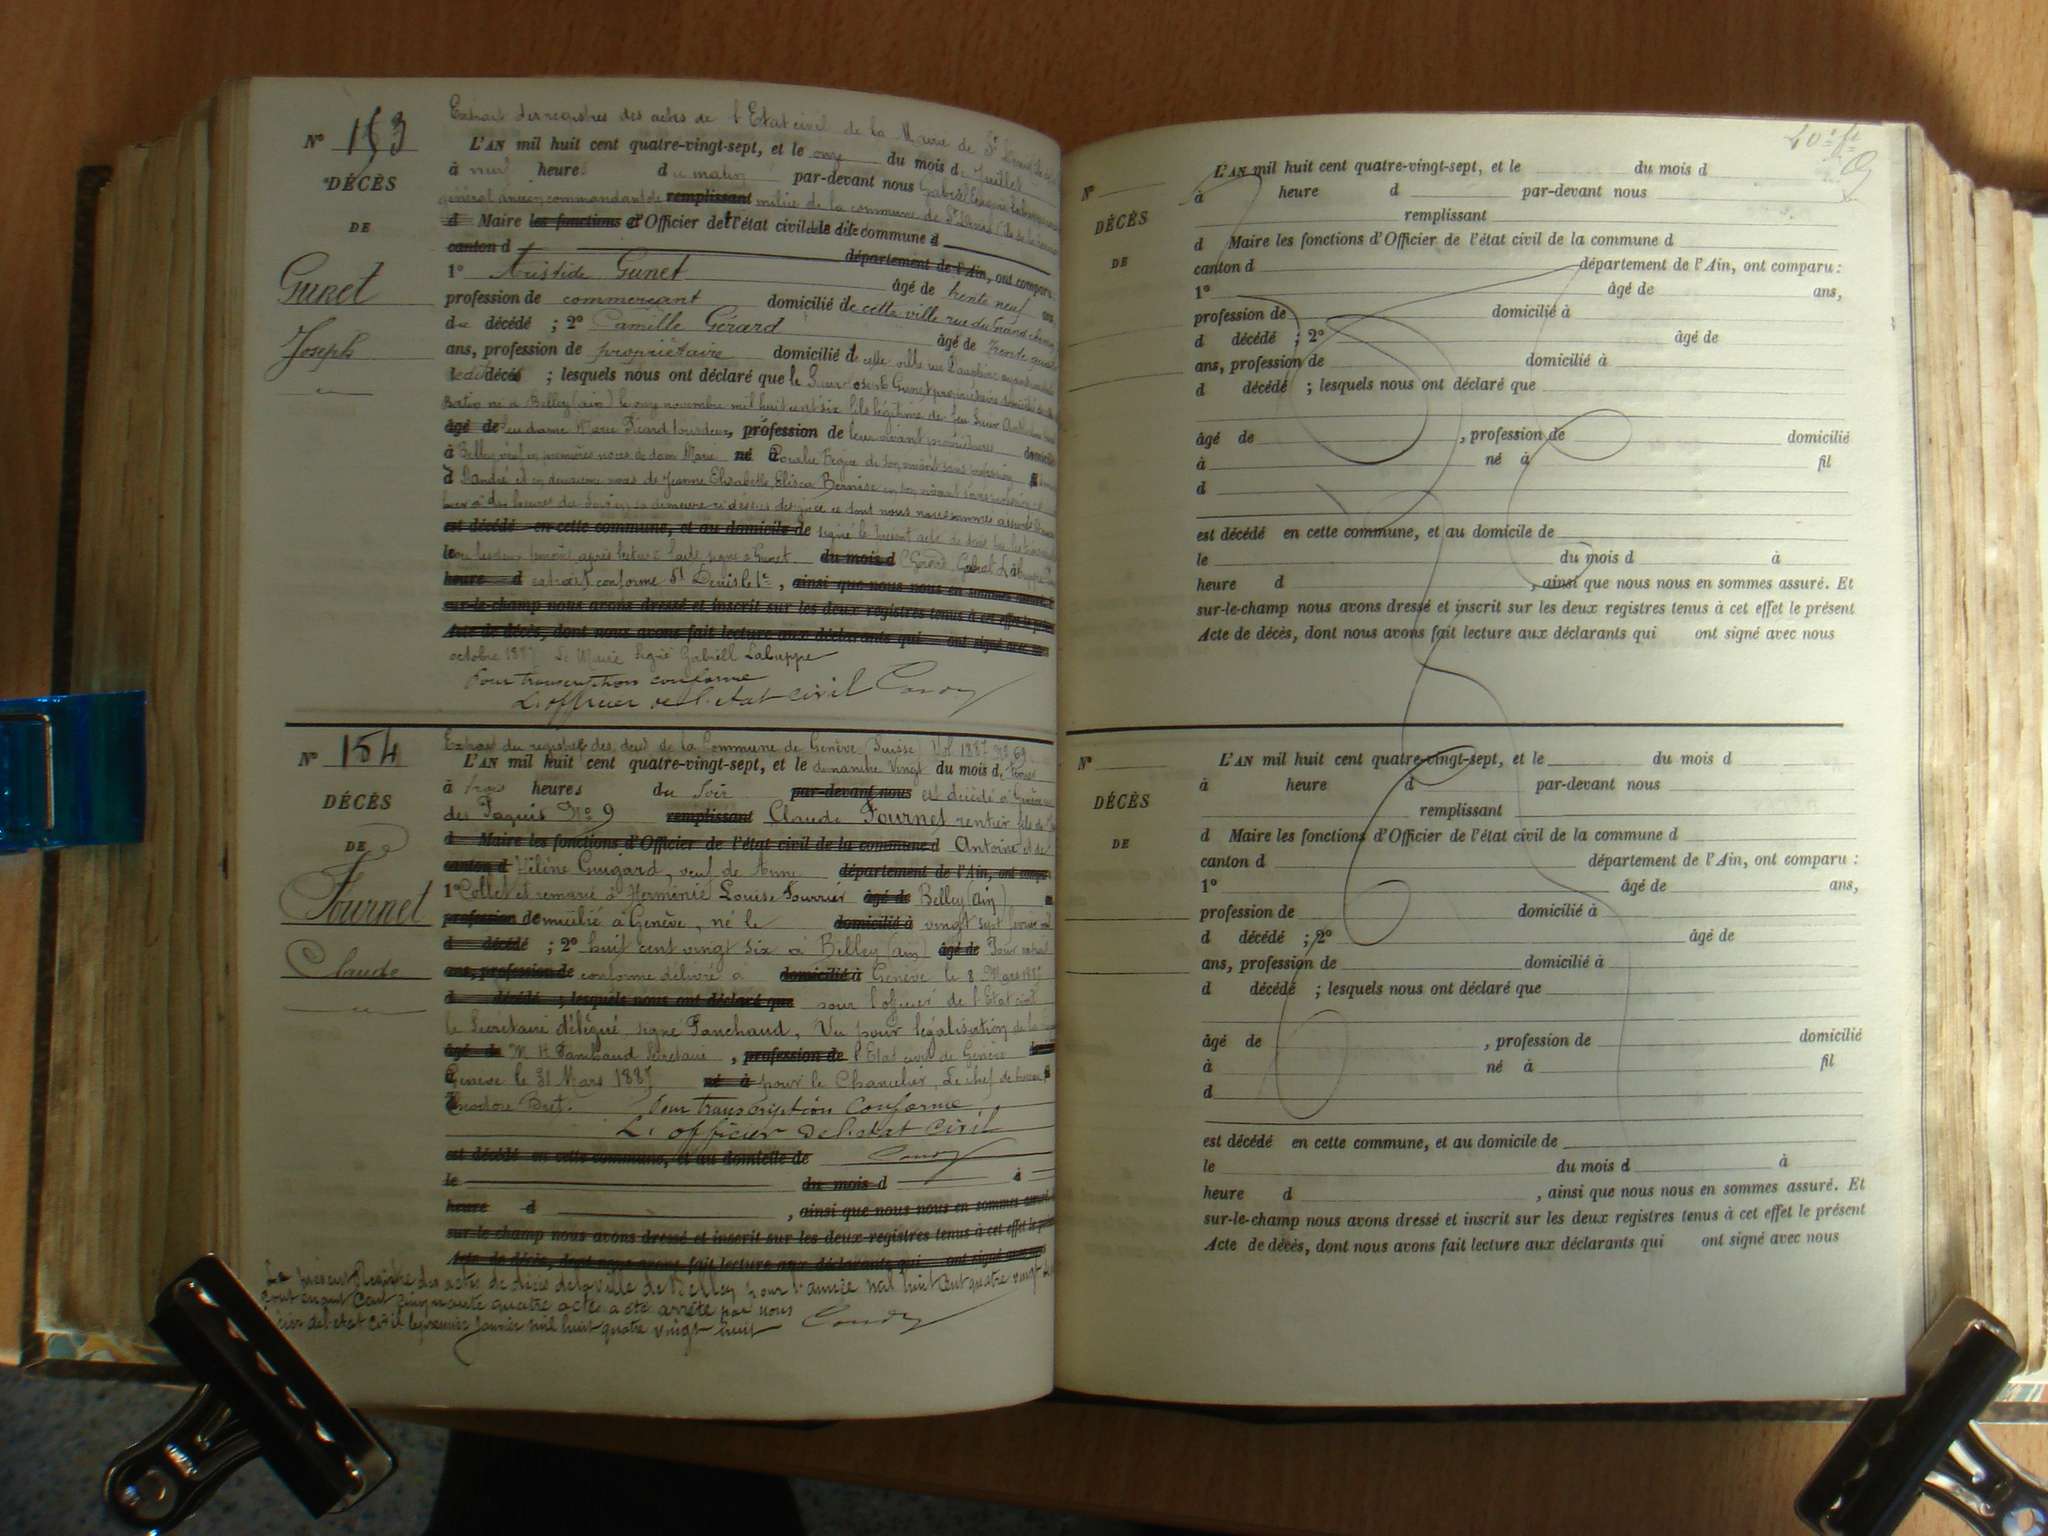 Nº 153
DÉCÈS
DE
Gunet
Joseph
Extrait des registres des actes de l'Etat civil de la Mairie de St
L'AN mil huit cent quatre-vingt-sept, et le onze du mois de Juillet
à neuf heure du matin par-devant nous Gabriel
général ancien commandant de remplissant milice de la commune de St Denis
d Maire les fonctions d'Officier de l'état civil de la dite commune d
canton d département de l'Ain, ont comparu
1º Aristide Gunet âgé de trente neuf ans
profession de commerçant domicilié de cette ville rue du Grand
du décédé ; 2º Camille Gérard âgé de trente
ans, profession de propriétaire domicilié de cette ville rue
décédé ; lesquels nous ont déclaré que le Sieur Gunet propriétaire domicilié
né à Belley (ain) le onze novembre mil huit cent six fils légitime de feu Sieur
âgé de feu dame Marie profession de leur vivant propriétaires
à Belley, veuf en premières noces de dame Marie né à Rosalie de son vivant sans profession
d et en deuxième noces de Jeanne Elisabeth de son vivant
heures du demeure ci dessus désignée ce dont nous nous sommes
est décédé en cette commune, et au domicile de signé le présent acte
le les deux témoins après lecture faite signé a Gunet du mois d Gérard Gabriel
heure d extrait conforme St Denis le 1er, ainsi que nous nous en sommes assuré
sur-le-champ nous avons dressé et inscrit sur les deux registres tenus à cet effet le présent
Acte de décès, dont nous avons fait lecture aux déclarants qui ont signé avec nous
octobre 1887 Le Maire signé Gabriell Labuppe
Pour transcription conforme
L'officier de l'état civil
Nº 154
DÉCÈS
DE
Fournet
Claude
Extrait du registre des décès de la Commune de Genève (Suisse) Vol. 1887 Nº 69
L'AN mil huit cent quatre-vingt-sept, et le dimanche Vingt du mois de
à trois heures du Soir par-devant nous est décédé à Genève
des Paquis Nº 9 remplissant Claude Fournet rentier fils de
d Maire les fonctions d'Officier de l'état civil de la commune d Antoine et de
canton d Hélène Guigard, veuf de Anne département de l'Ain, ont comparu
1º Collet et remarié à Herminie Louise Fourrier âgé de Belley (Ain)
profession domicilié à Genève, né le domicilié à vingt sept février mil
d décédé ; 2º huit cent vingt six à Belley (ain) âgé de Pour extrait
ans, profession de conforme délivré a domicilié à Genève le 8 Mars 1887
d décédé ; lesquels nous ont déclaré que pour l'officier de l'Etat civil
le Secrétaire délégué signé Panchaud. Vu pour légalisation de la
âgé de M. H. Panchaud Secrétaire, profession de l'Etat civil de Genève
Genève le 31 Mars 1887 né à pour le Chancelier, Le chef de bureau
Théodore Bret. Pour transcription Conforme
L'officier de l'etat Civil
est décédé en cette commune, et au domicile de
le du mois d à
heure d , ainsi que nous nous en sommes assuré
sur-le-champ nous avons dressé et inscrit sur les deux registres tenus à cet effet le présent
Acte de décès, dont nous avons fait lecture aux déclarants qui ont signé avec nous
Le present Registre des actes de décès de la ville de Belley pour l'année mil huit cent quatre vingt
contenant Cent cinquante quatre actes a été arrêté par nous
de l'etat civil le premier Janvier mil huit quatre vingt huit
Nº
DÉCÈS
DE
L'AN mil huit cent quatre-vingt-sept, et le du mois d
à heure d par-devant nous
remplissant
d Maire les fonctions d'Officier de l'état civil de la commune d
canton d département de l'Ain, ont comparu :
1º âgé de ans,
profession de domicilié à
d décédé ; 2º âgé de
ans, profession de domicilié à
d décédé ; lesquels nous ont déclaré que
âgé de , profession de domicilié
à né à fil
d
est décédé en cette commune, et au domicile de
le du mois d à
heure d , ainsi que nous nous en sommes assuré. Et
sur-le-champ nous avons dressé et inscrit sur les deux registres tenus à cet effet le présent
Acte de décès, dont nous avons fait lecture aux déclarants qui ont signé avec nous
Nº
DÉCÈS
DE
L'AN mil huit cent quatre-vingt-sept, et le du mois d
à heure d par-devant nous
remplissant
d Maire les fonctions d'Officier de l'état civil de la commune d
canton d département de l'Ain, ont comparu :
1º âgé de ans,
profession de domicilié à
d décédé ; 2º âgé de
ans, profession de domicilié à
d décédé ; lesquels nous ont déclaré que
âgé de , profession de domicilié
à né à fil
d
est décédé en cette commune, et au domicile de
le du mois d à
heure d , ainsi que nous nous en sommes assuré. Et
sur-le-champ nous avons dressé et inscrit sur les deux registres tenus à cet effet le présent
Acte de décès, dont nous avons fait lecture aux déclarants qui ont signé avec nous